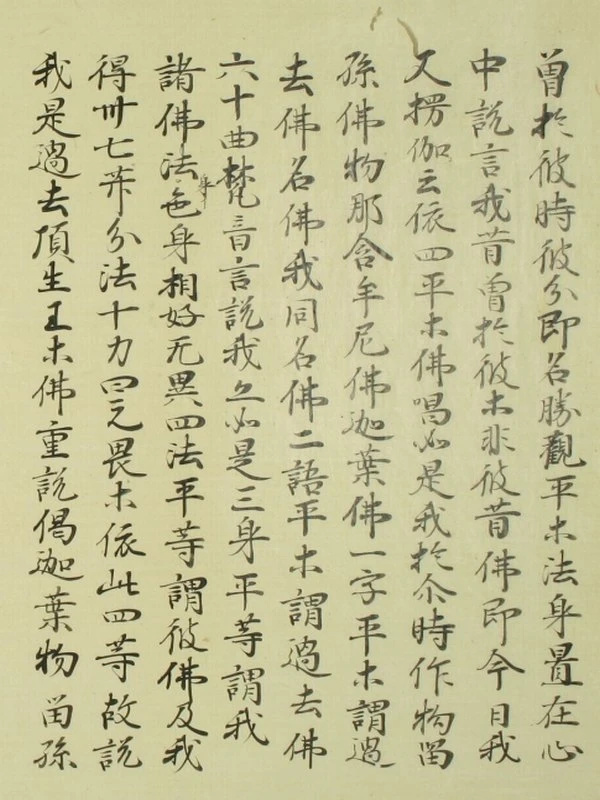 曾於彼時彼分即名勝觀平木法身置在心
中說言我昔曾於彼木非彼昔佛即今日我
又楞伽云依四平木佛唱如是我於尒時作拘留
孫佛拘那含牟尼佛迦葉佛一字平木謂過
去佛名佛我同名佛二語平木謂過去佛
六十曲梵音言說我亦如是三身平等謂我
諸佛法身色身相好无異四法平等謂彼佛及我
得卅七苐分法十力四无畏木依此四等故說
我是過去頂生王木佛重說偈迦葉拘留孫